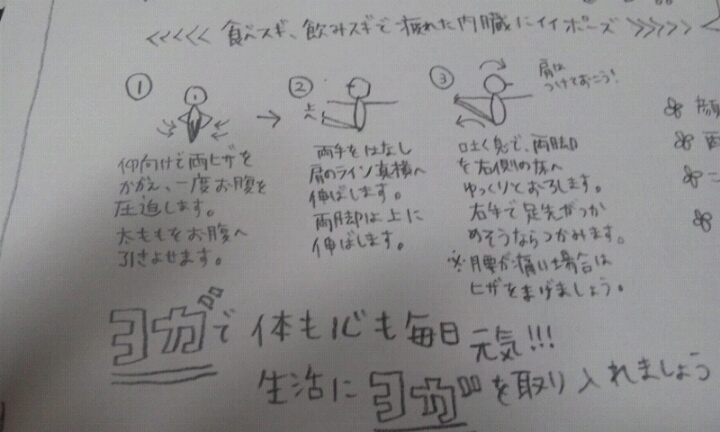 <<<<< 食べスギ、飲みスギで疲れた内臓にイイポーズ >>>>> <
①
仰向けで両ヒザを
かかえ、一度お腹を
圧迫します。
太ももをお腹へ
引きよせます。
→
②
上へ
両手をはなし
肩のライン真横へ
伸ばします。
両脚は上に
伸ばします。
③
肩は
つけておこう!
吐く息で、両脚
を右側の床へ
ゆっくりとおろします。
右手で足先がつか
めそうならつかみます。
※腰が痛い場合は
ヒザをまげましょう。
顔
ヨガで体も心も毎日元気!!!
生活にヨガを取り入れましょう